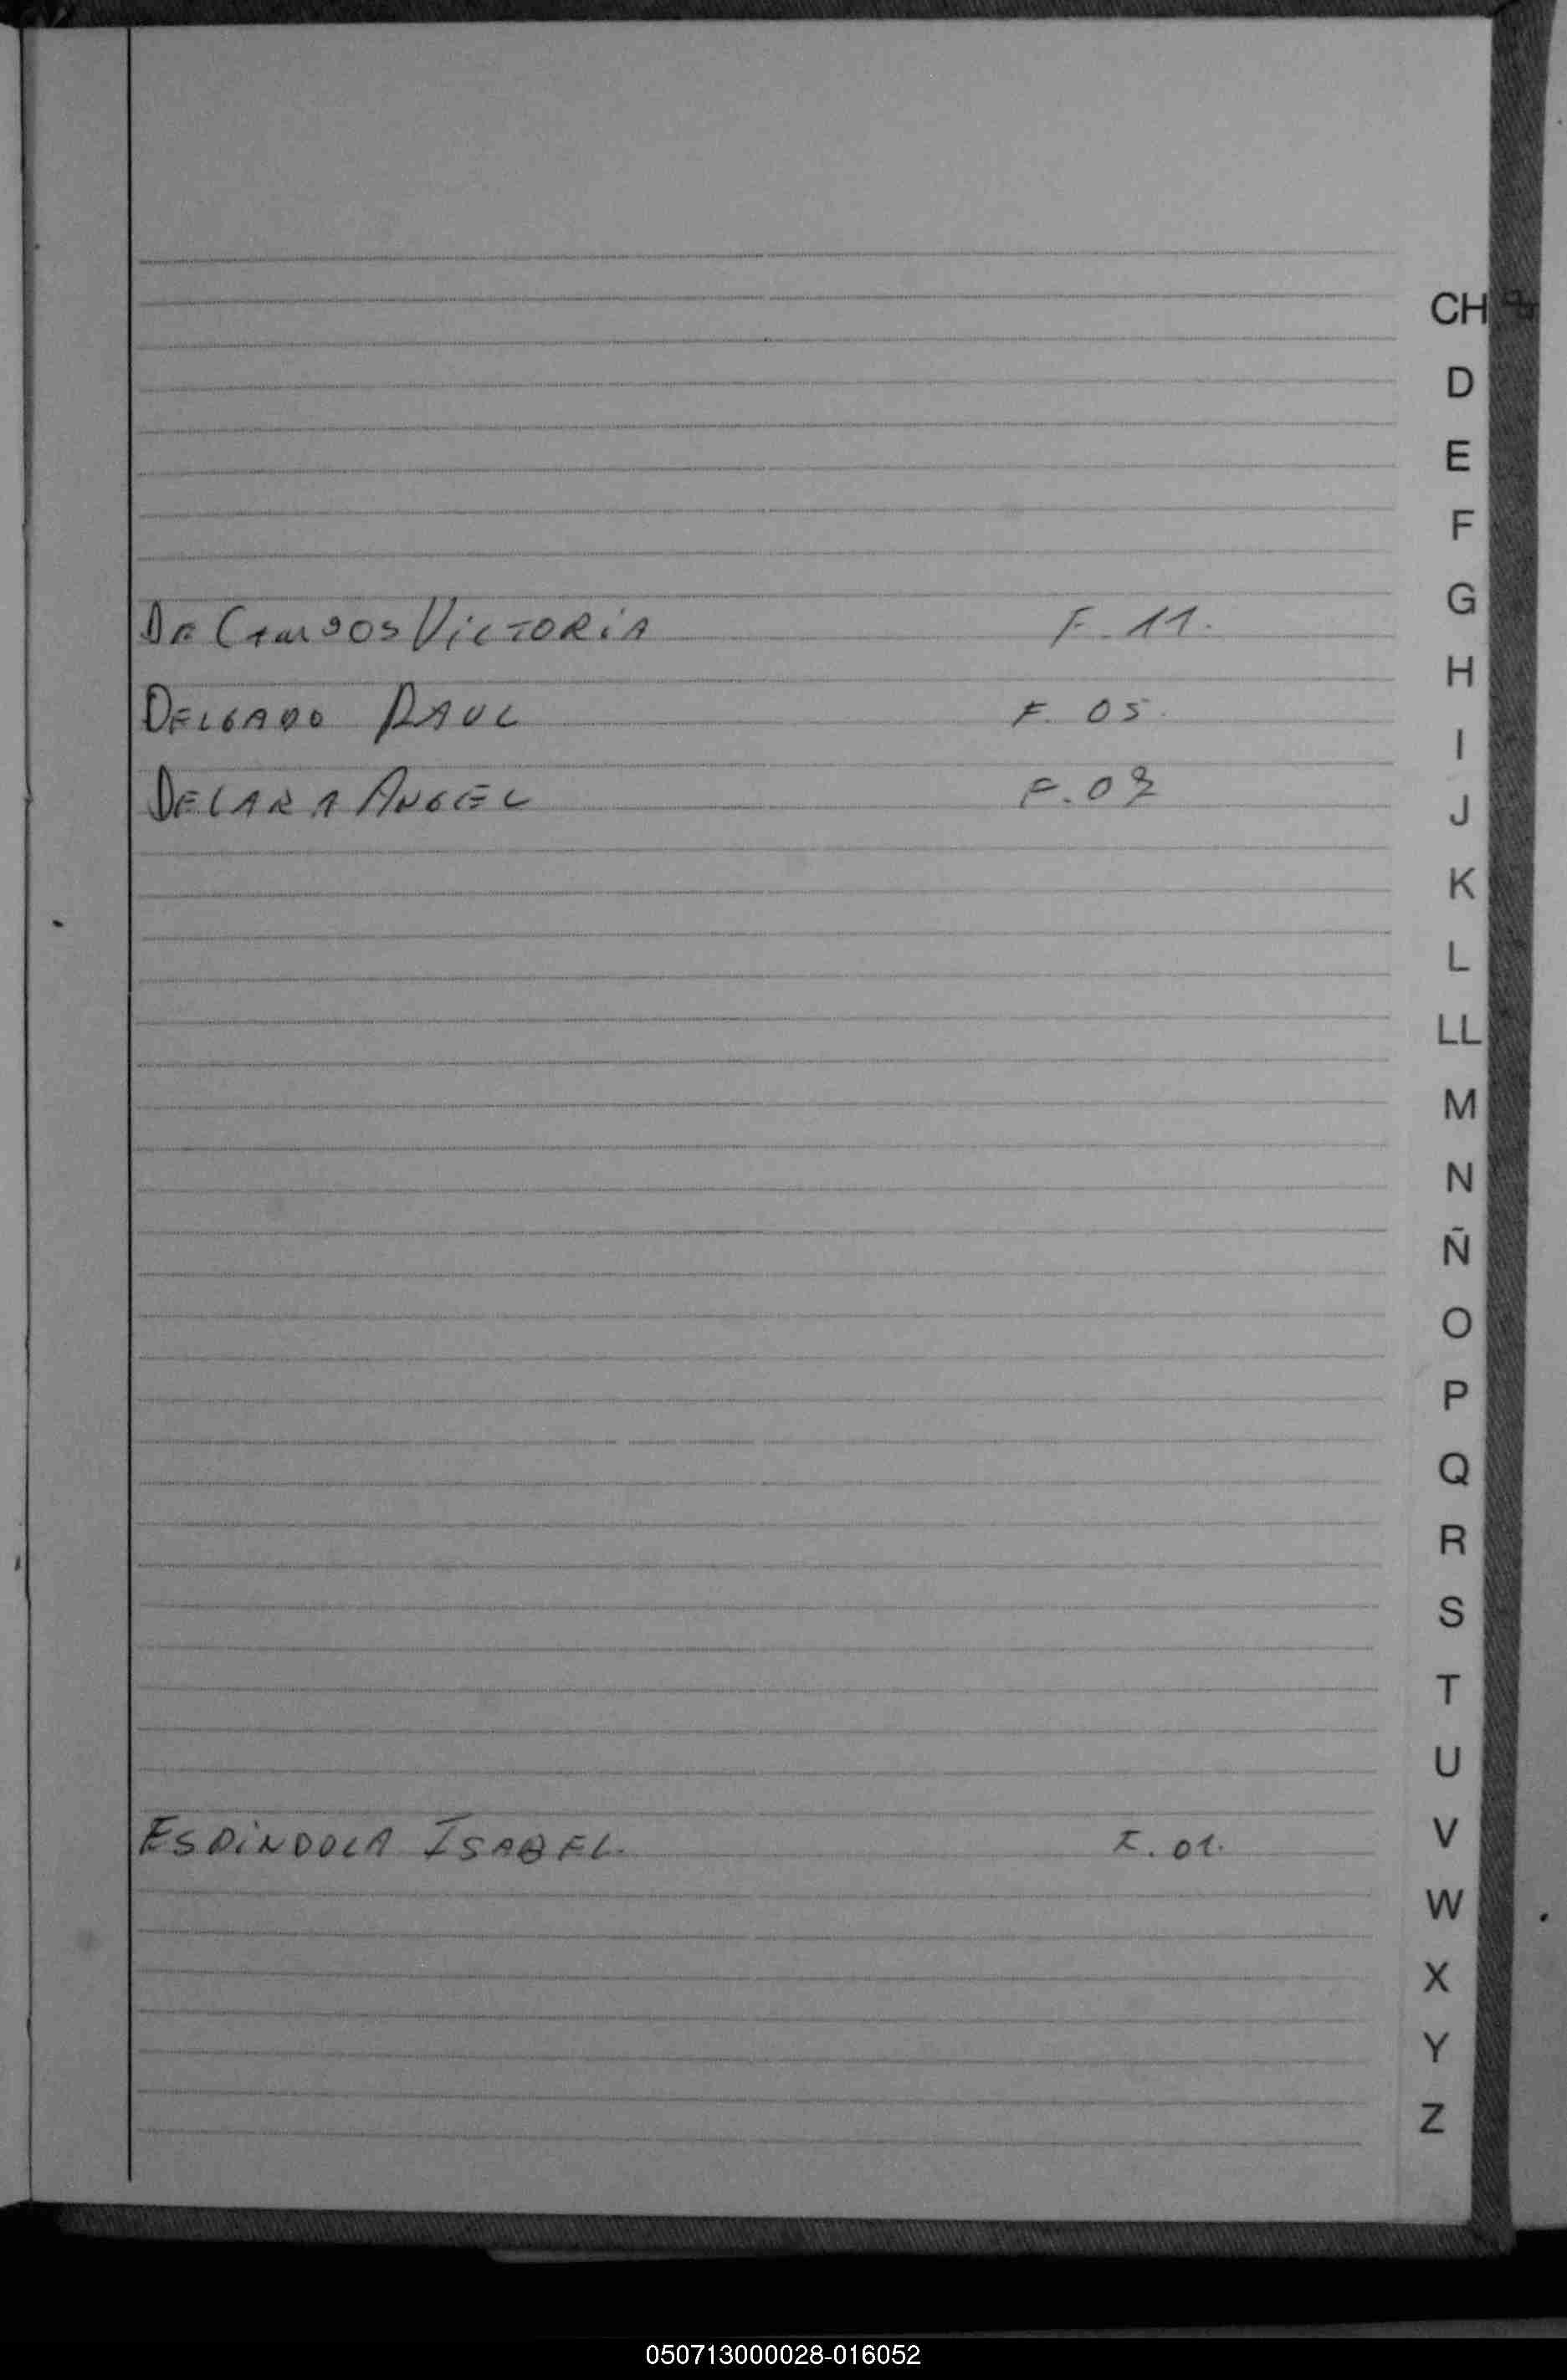 CH
D
E
F
G
De Campos Victoria F. 11.
H
DELGADO RAUL F. 05.
I
DELARA ANGEL F. 02
J
K
L
LL
M
N
Ñ
O
P
Q
R
S
T
U
V
ESPiNDOLA ISABEL. F. 01.
W
X
Y
Z
050713000028-016052